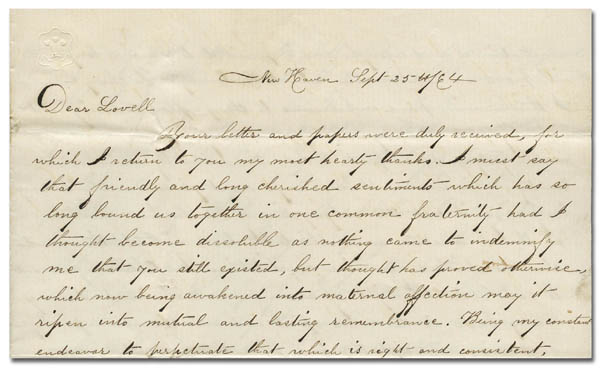 New Haven Sept 25th/64
Dear Lovell
Your letter and papers were duly received, for
which I return to you my most hearty thanks. I must say
that friendly and long cherished sentiments which has so
long bound us together in one common fraternity had I
thought become dissoluble as nothing came to indemnify
me that you still existed, but thought has proved otherwise,
which now being awakened into maternal affection may it
ripen into mutual and lasting remembrance. Being my constant
endeavor to perpetuate that which is right and consistent,